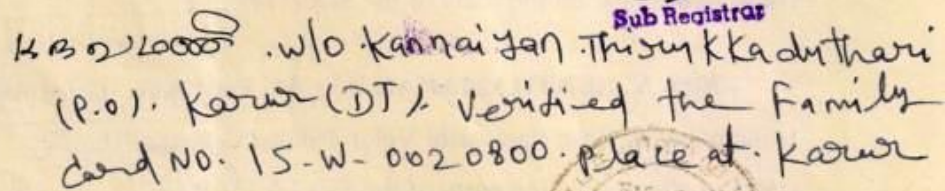 Sub Registrar
W/o Kannaiyan Thirukkaduthari
(P.O). Karur (DT). Verified the Family
Card NO. 15-W-0020800. Place at. Karur